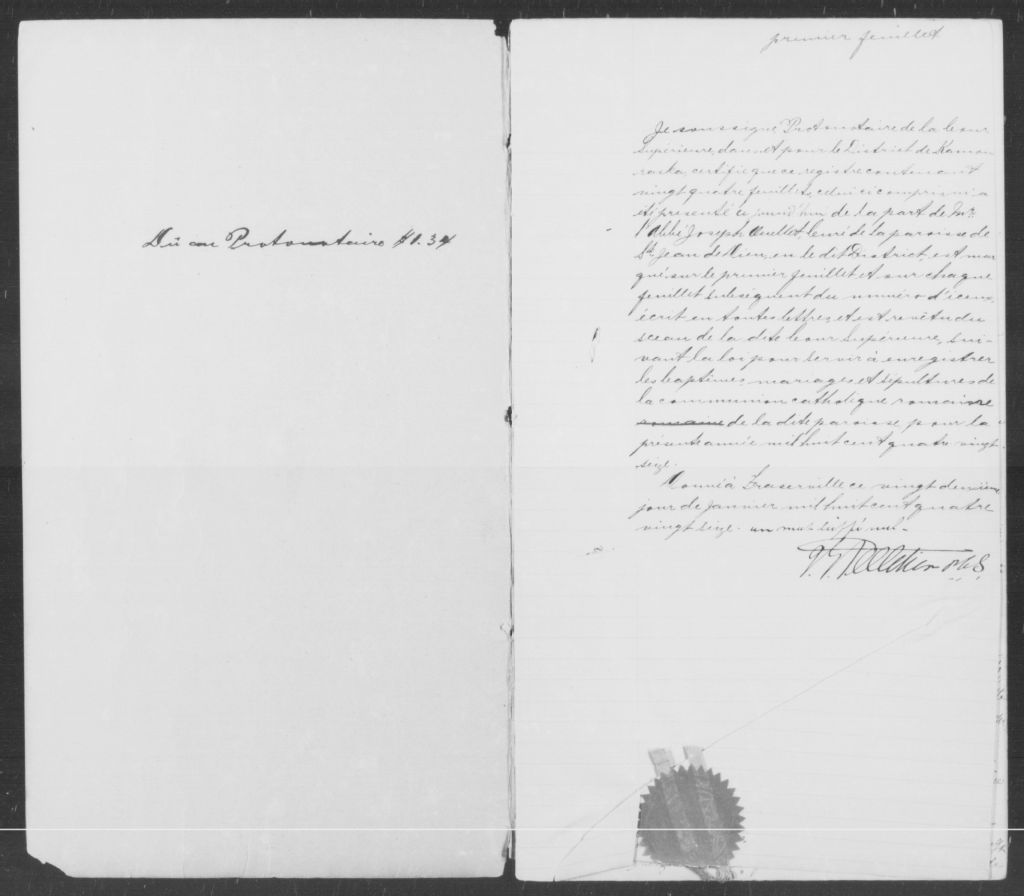 Dû au Protonotaire $1.34
premier feuillet
Je soussigné Protonotaire de la Cour
Supérieure, dans et pour le District de Kamou-
raska, certifie que ce registre contenant
vingt quatre feuillets, celui ci compris, m'a
été présenté ce jourd'hui de la part de Mr.
l'Abbé Joseph Ouellet, Curé de la paroisse de
St. Jean de Dieu, en le dit District, est mar-
qué sur le premier feuillet et sur chaque
feuillet subséquent du numéro d'iceux,
écrit en toutes lettres, et est revêtu du
sceau de la dite Cour Supérieure, sui-
vant la loi pour servir à enregistrer
les baptêmes, mariages et sépultures de
la communion catholique romaine
romaine de la dite paroisse pour la
présente année mil huit cent quatre vingt
seize.
Donné à Fraserville ce vingt deuxième
jour de Janvier mil huit cent quatre
vingt seize. un mot biffé nul.
Pelletier P.C.S.